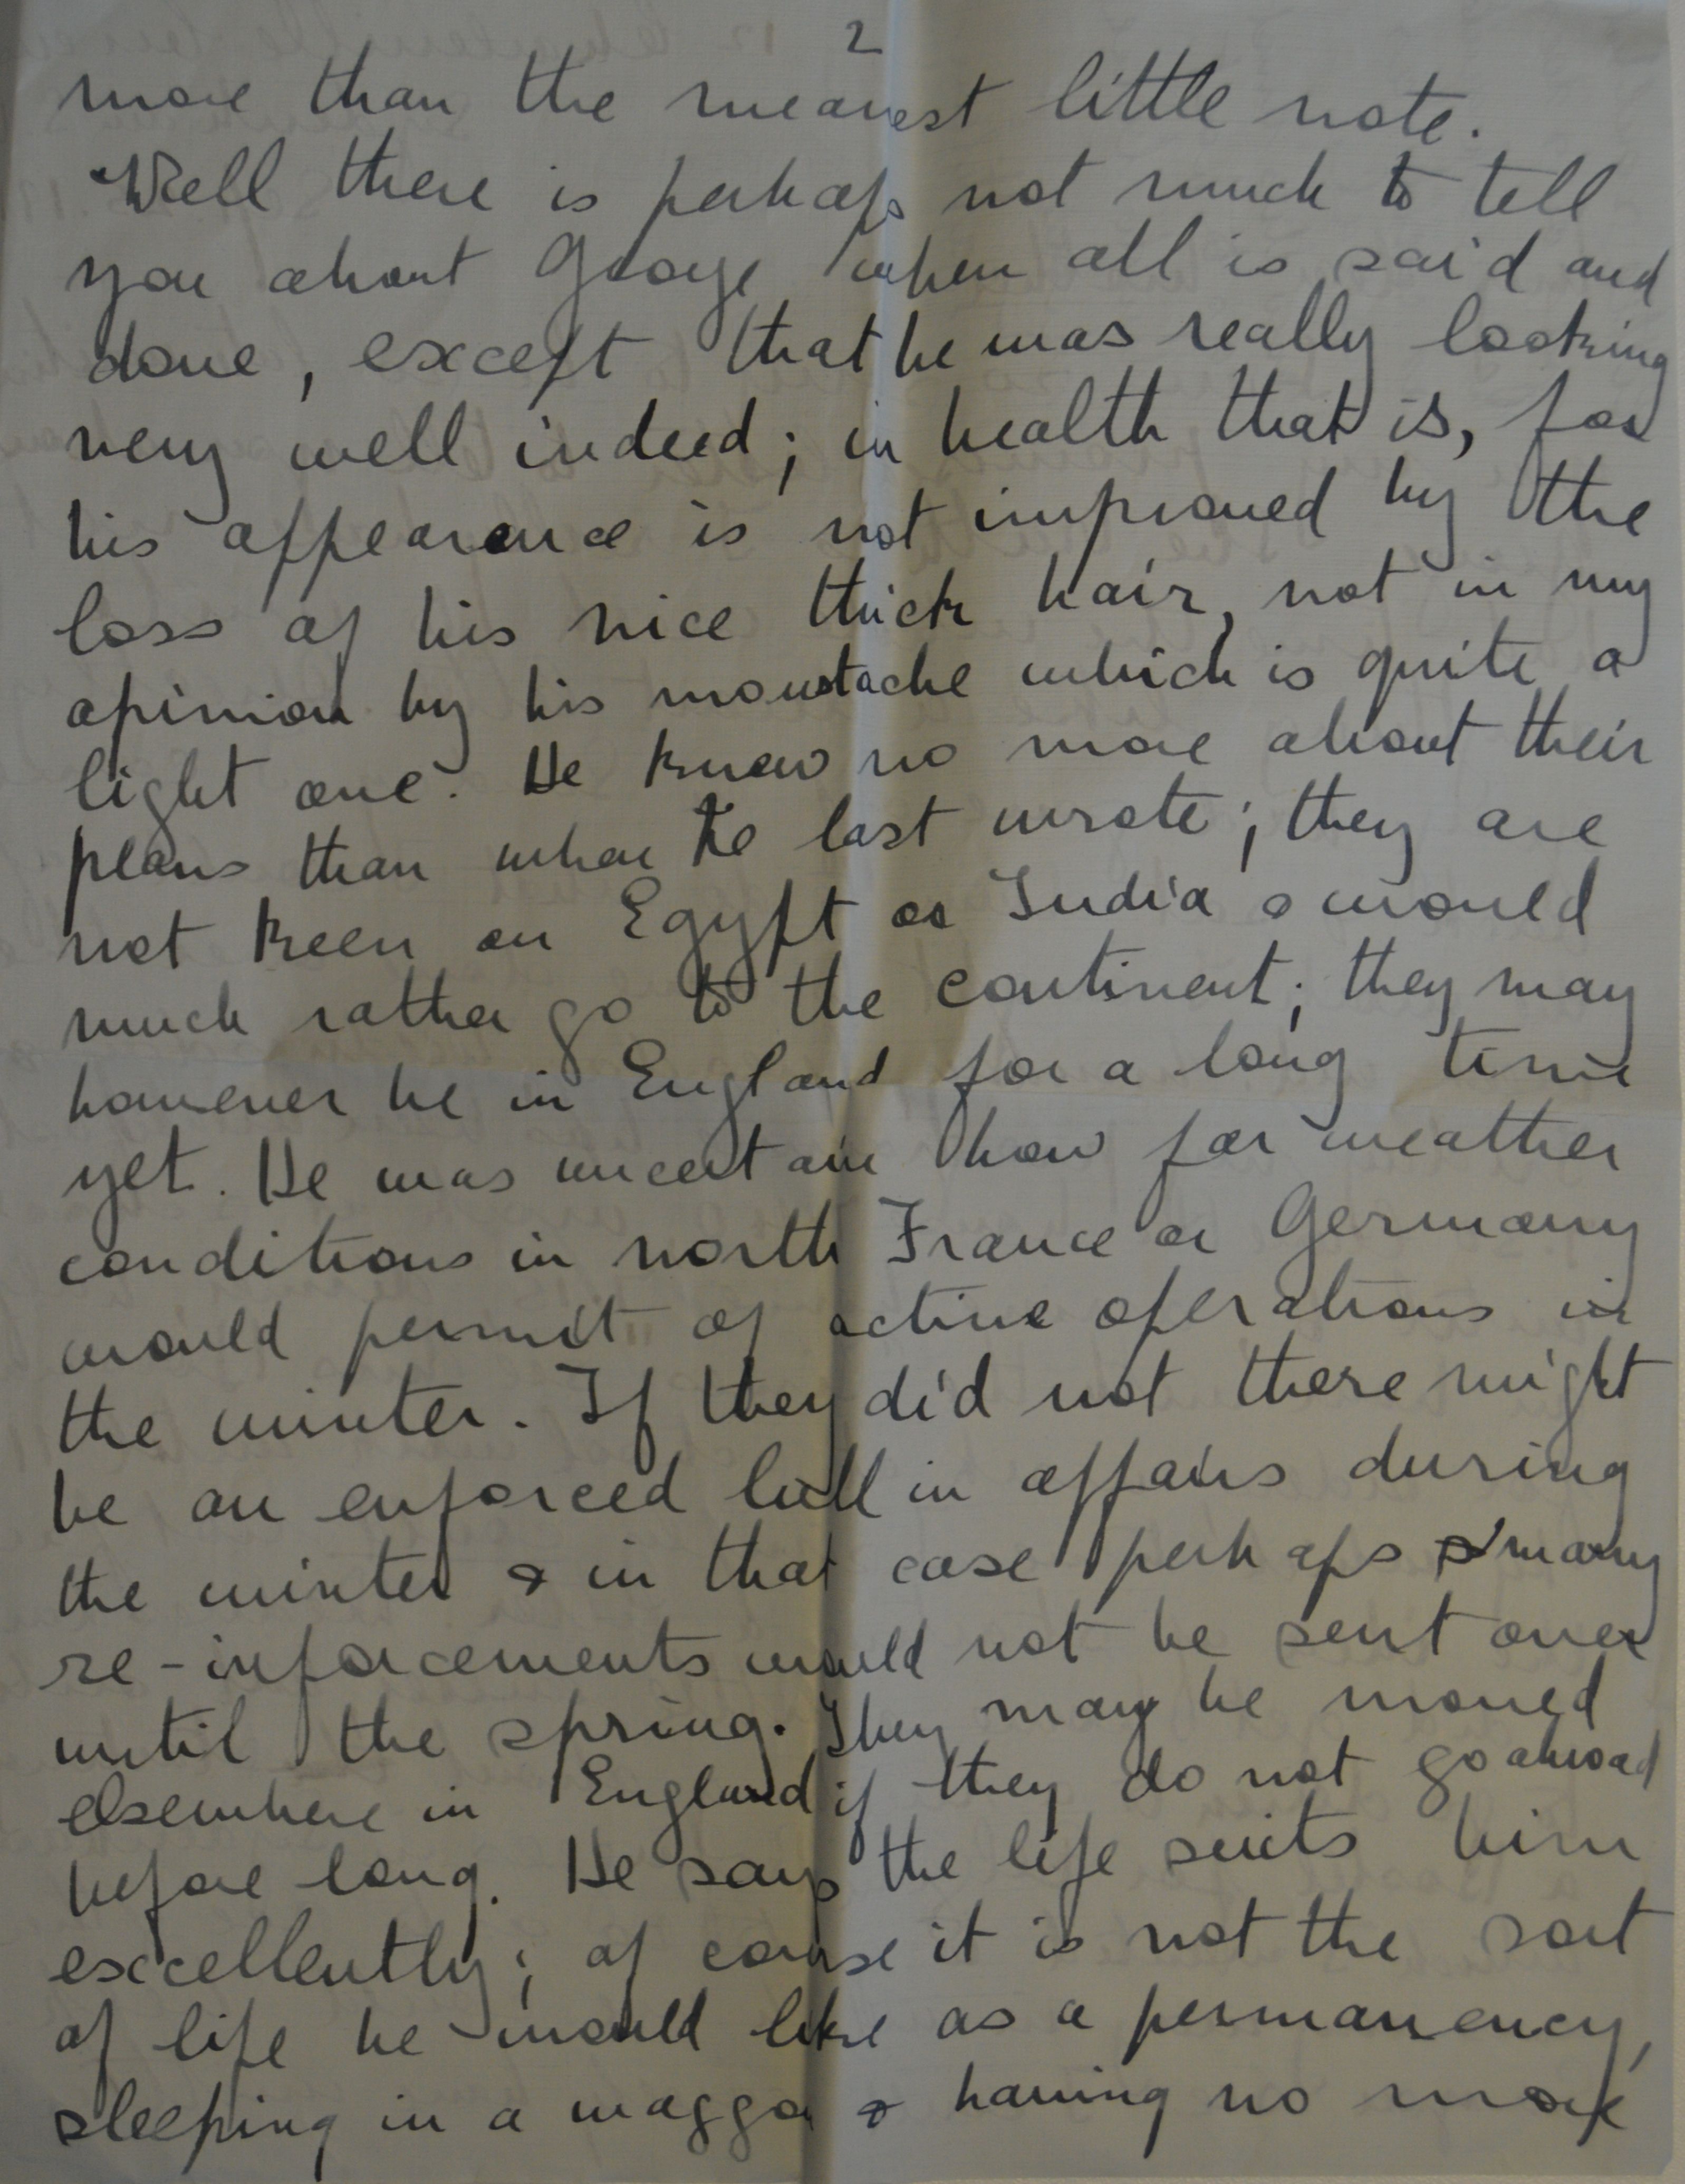 2
more than the meanest little note.
Well there is perhaps not much to tell
you about George when all is said and
done, except that he was really looking
very well indeed; in health that is, for
his appearance is not improved by the
loss of his nice thick hair, not in my
opinion by his moustache which is quite a
light one. He knew no more about their
plans than when he last wrote; they are
not keen on Egypt or India & would
much rather go to the continent; they may
however be in England for a long time
yet. He was uncertain how far weather
conditions in north France or Germany
would permit of active operations in
the winter. If they did not there might
be an enforced lull in affairs during
the winter & in that case perhaps many
re-inforcements would not be sent over
until the spring. They may be moved
elsewhere in England if they do not go abroad
before long. He says the life suits him
excellently; of course it is not the sort
of life he would like as a permanency,
sleeping in a waggon & having no more